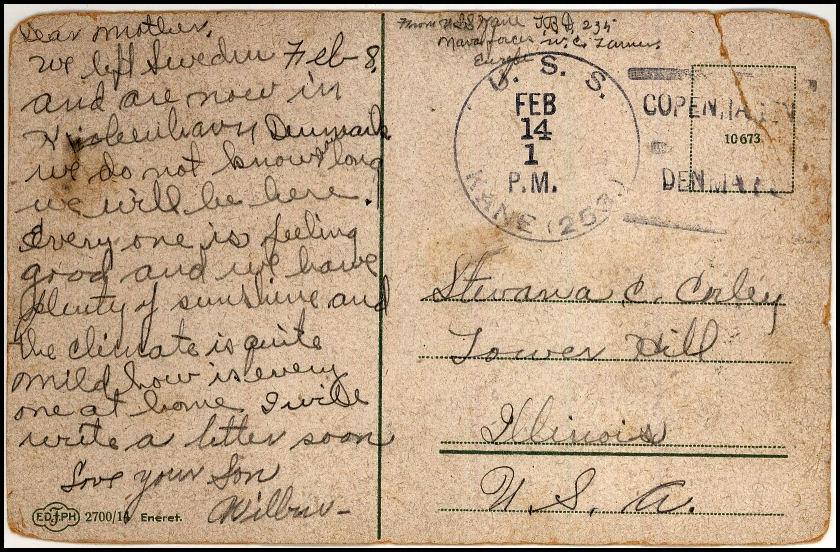 Dear Mother,
We left Sweden Feb 8,
and are now in
Denmark
we do not know how long
we will be here.
Every one is feeling
good and we have
plenty of sunshine and
the climate is quite
mild how is every
one at home. I will
write a letter soon
Love your Son
Wilbur-
EDJ.PH 2700/14 Eneret.
From U.S.S. Kane T.B.D. 235
Naval forces
U. S. S.
FEB
14
1
P.M.
KANE (253.)
COPENHAGEN
DENMARK
10673
C. Corley
Tower Hill
Illinois
U. S. A.